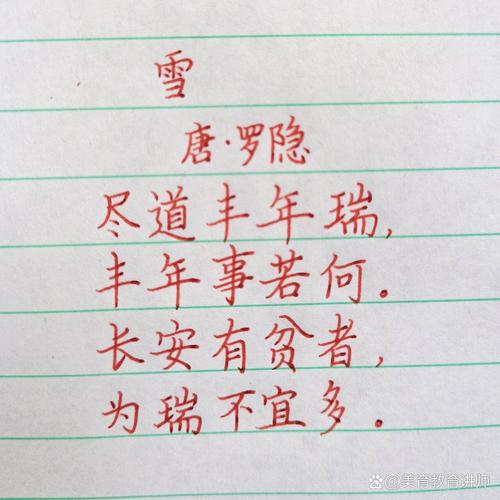 雪
唐·罗隐
尽道丰年瑞,
丰年事若何.
长安有贫者,
为瑞不宜多.
美育教育讲师